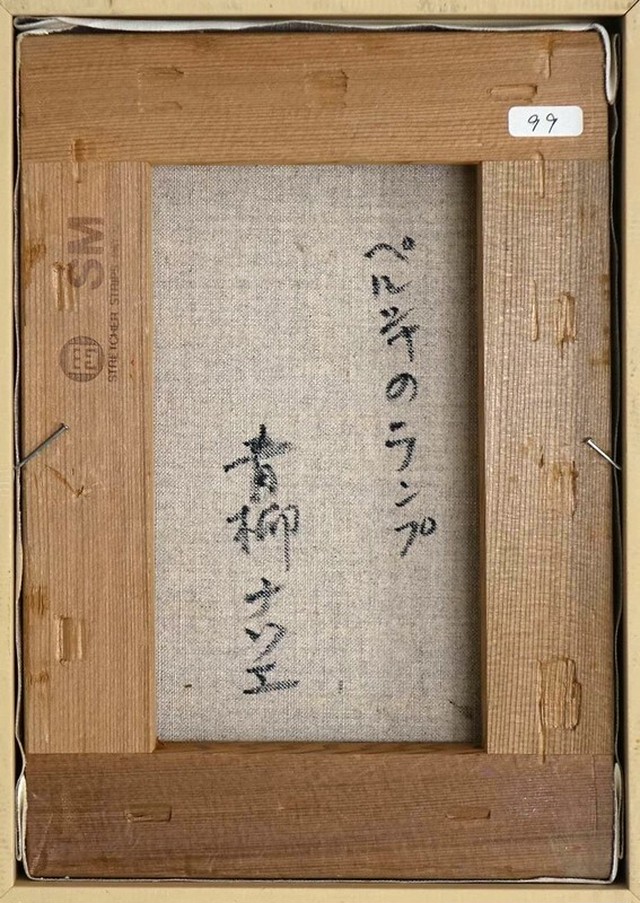 99
ペルシャのランプ
青柳ナツエ
SM
STRETCHER STRIPS